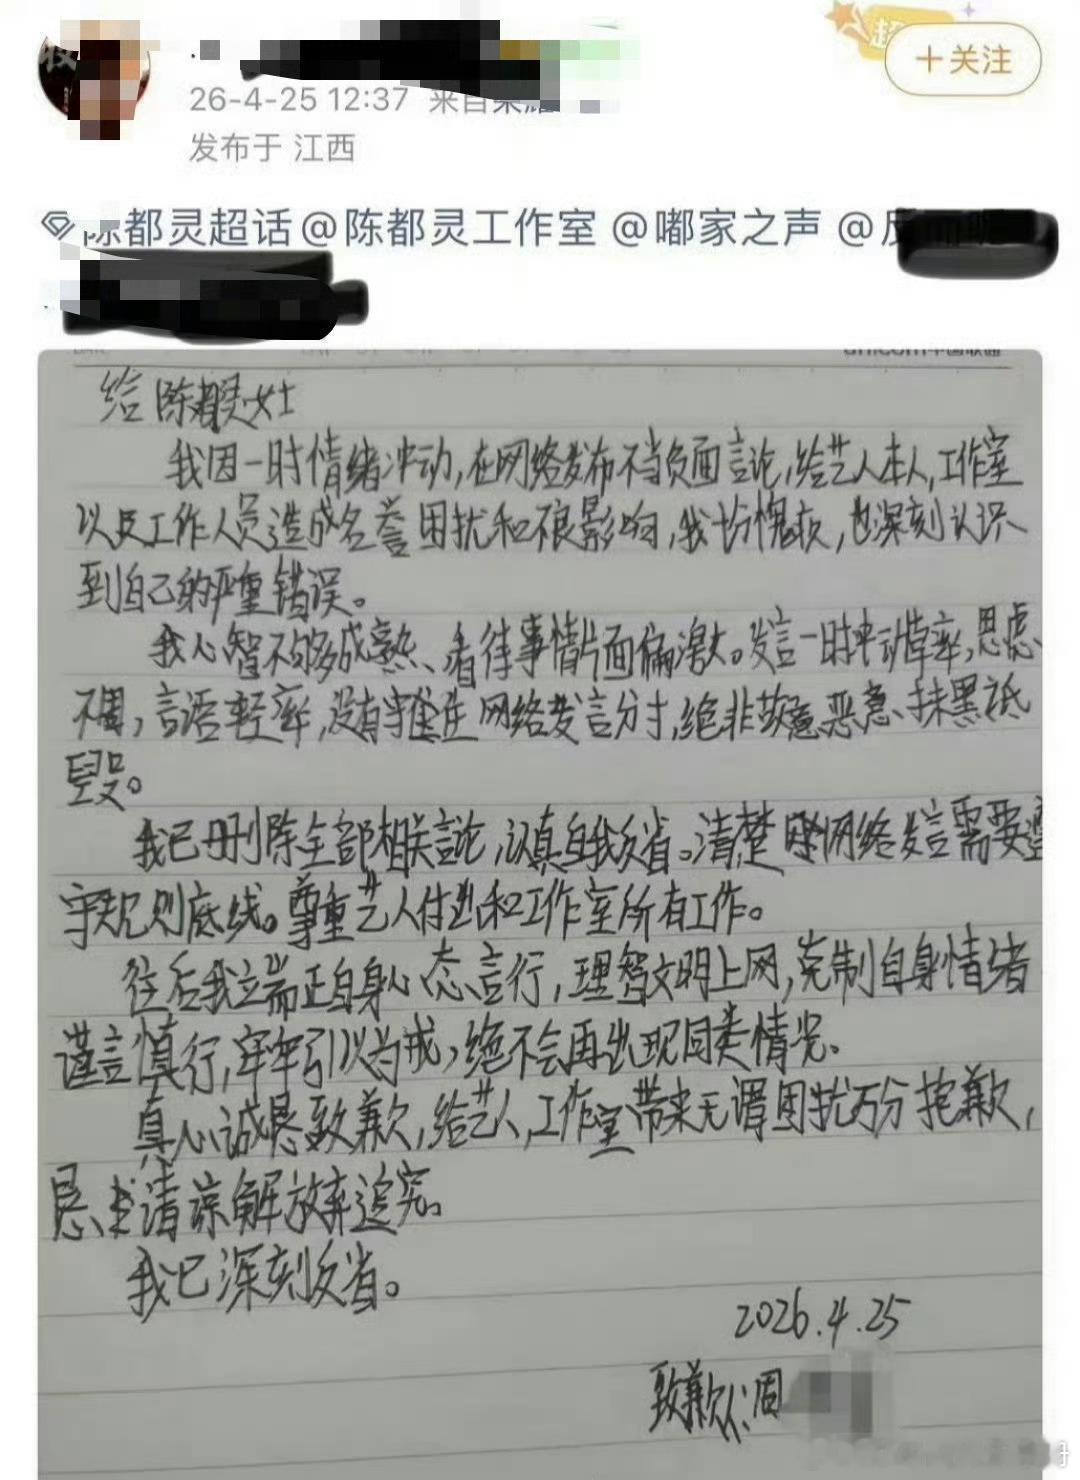 超
十关注
26-4-25 12:37 来自荣耀
发布于 江西
陈都灵超话@陈都灵工作室 @嘟家之声 @反
unicom中国联通
给陈都灵女士
我因一时情绪冲动,在网络发布不当负面言论,给艺人本人,工作室
以及工作人员造成名誉困扰和不良影响,我十分愧疚,也深刻认识
到自己的严重错误。
我心智不够成熟、看待事情片面偏激。发言一时冲动草率,思虑
不周,言语轻率,没有守住网络发言分寸,绝非故意恶意、抹黑诋
毁。
我已删除全部相关言论,认真自我反省。清楚网络发言需要遵
守规则底线。尊重艺人付出和工作室所有工作。
往后我立端正自身心态言行,理智文明上网,克制自身情绪
谨言慎行,牢牢引以为戒,绝不会再出现同类情况。
真心诚恳致歉,给艺人,工作室带来无谓困扰万分抱歉,
恳求请谅解放弃追究。
我已深刻反省。
2026.4.25
致歉人:周